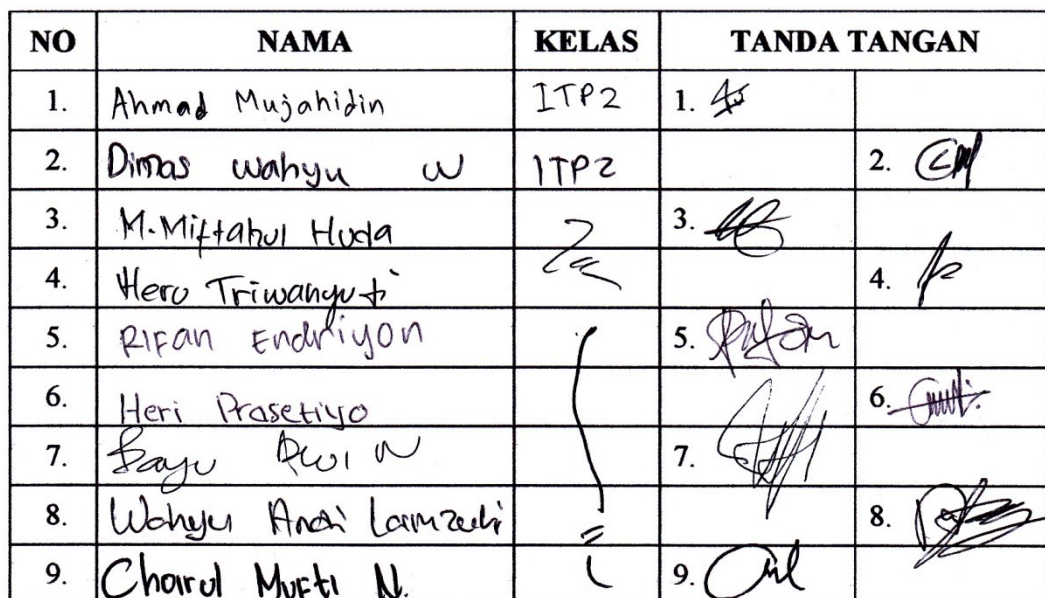 NO NAMA KELAS TANDA TANGAN
1. Ahmad Mujahidin ITP2 1.
2. Dimas Wahyu W ITP2 2.
3. M. Miftahul Huda 3.
4. Heru Triwahyudi 4.
5. RIFan Endriyon 5. Rifan
6. Heri Prasetiyo 6.
7. Bayu Dwi N 7.
8. Wahyu Andi 8.
9. Choirul Mufti N. 9.